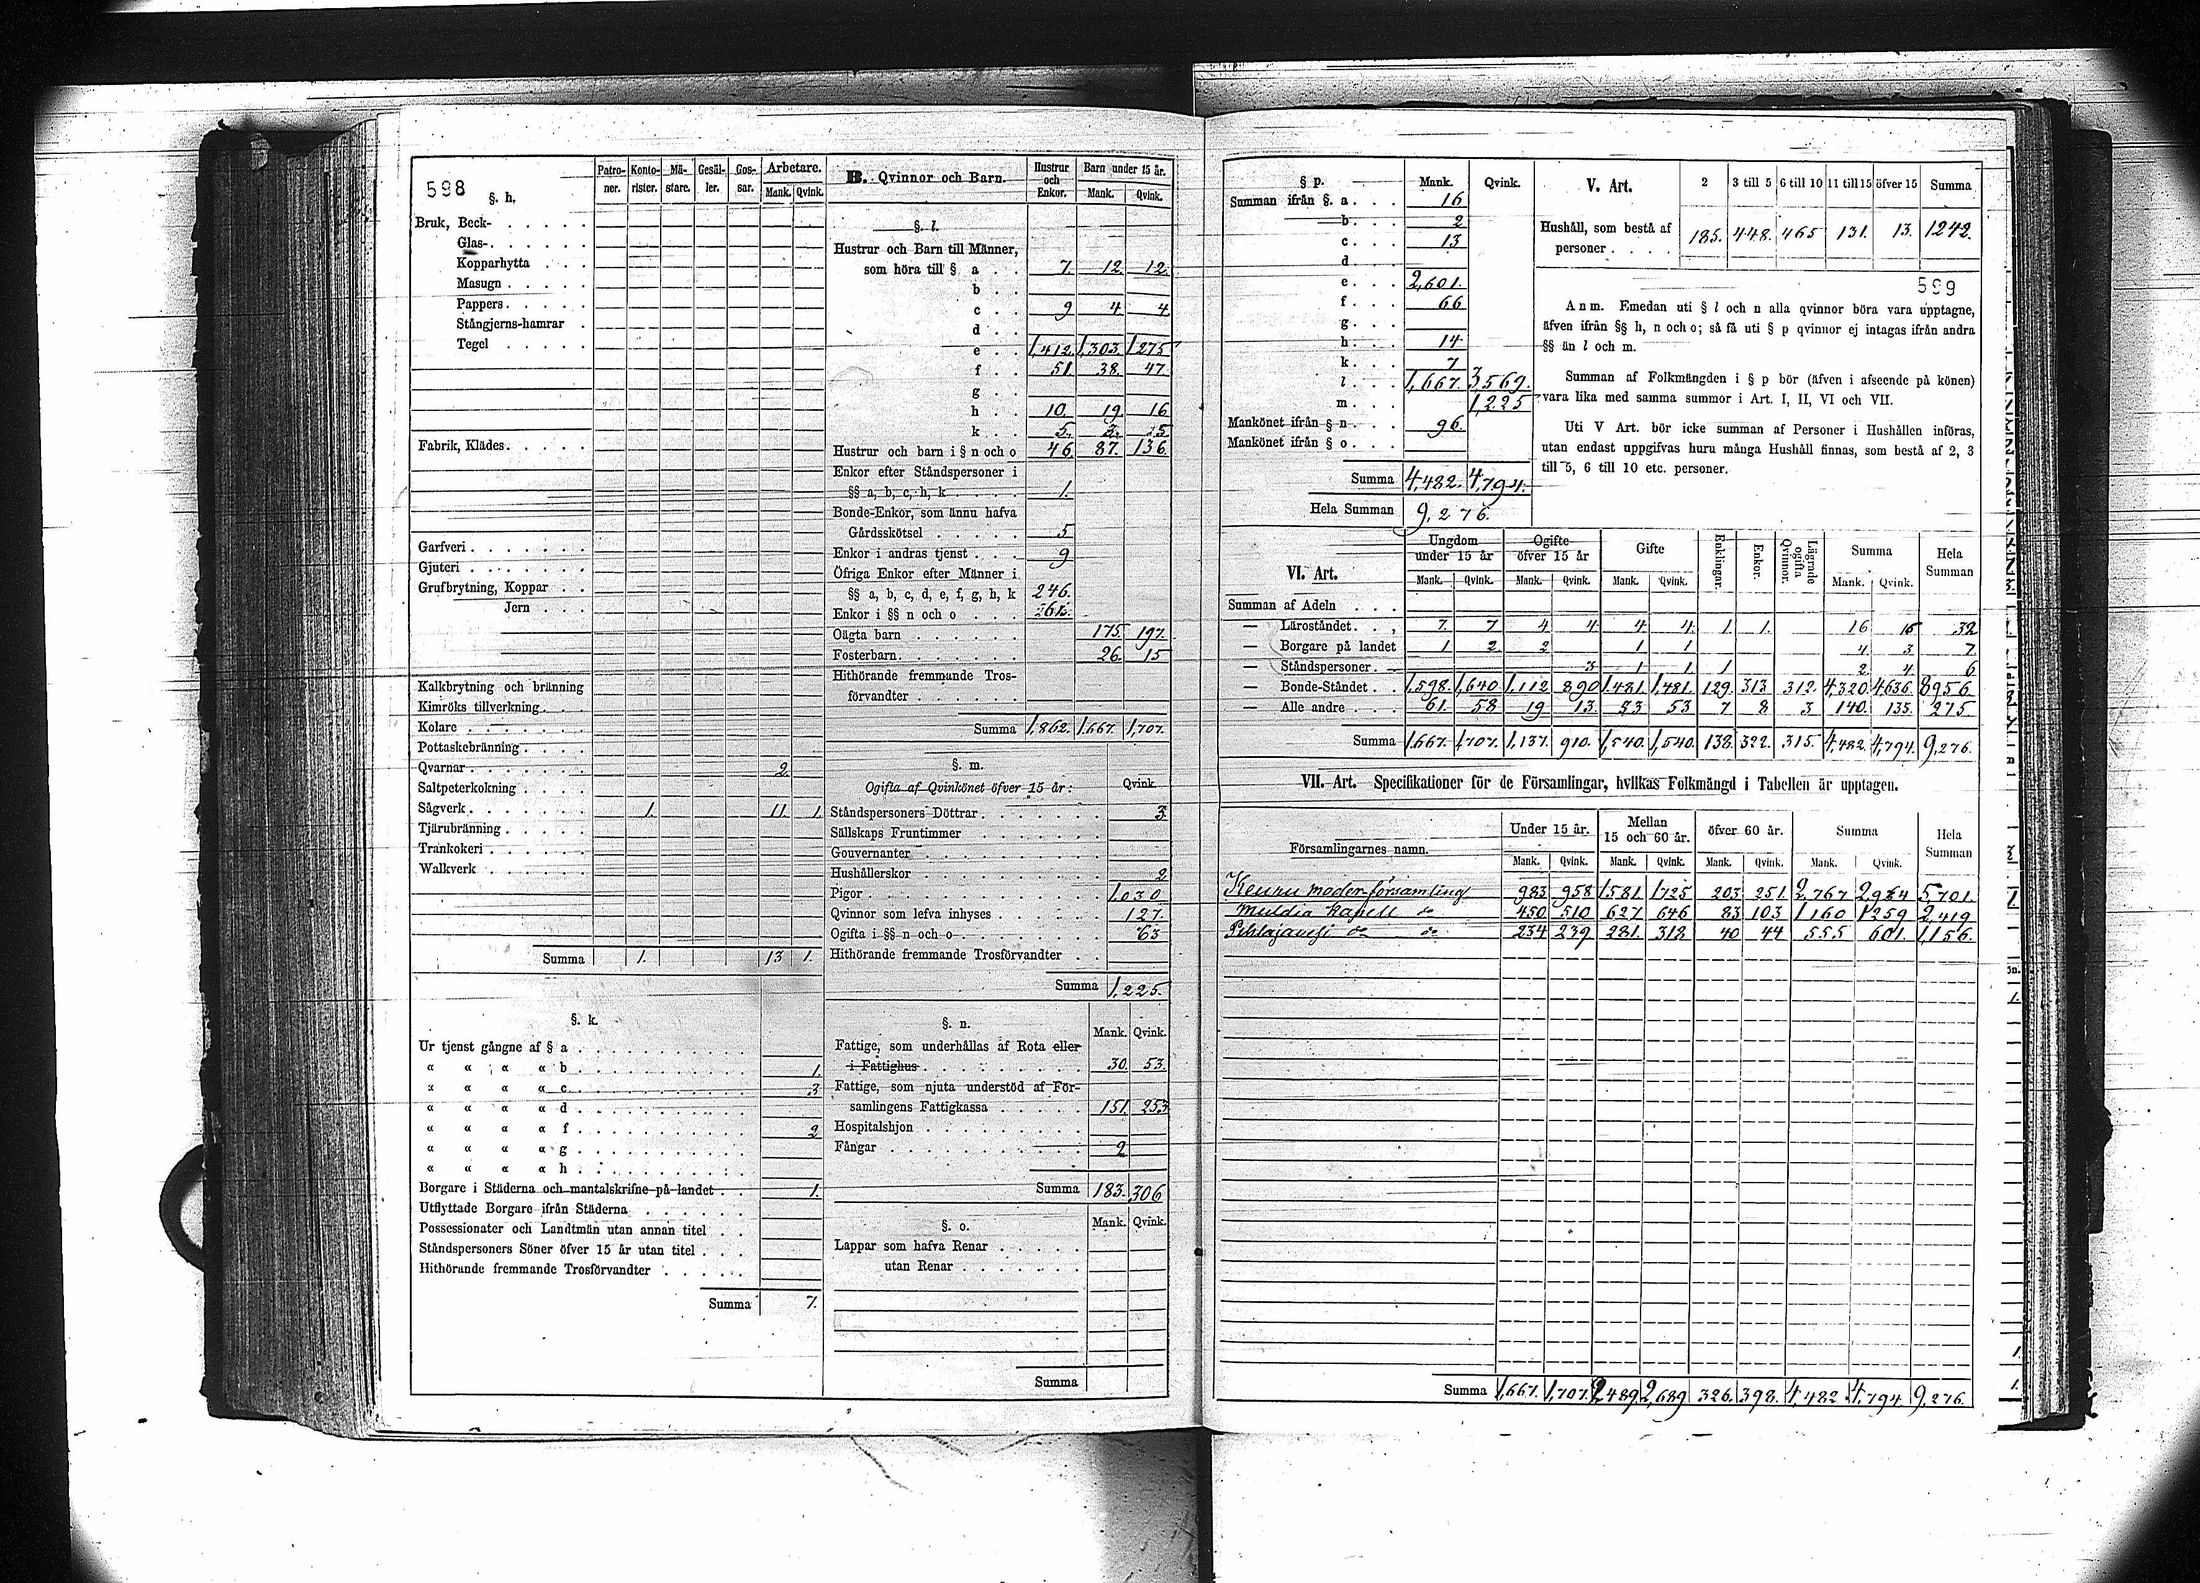 598
§. h.
Patroner. Kontorister. Mästare. Gesäller. Gossar. Arbetare. Mank. Qvink.
Bruk, Beck-
Glas-
Kopparhytta
Masugn
Pappers
Stångjerns-hamrar
Tegel
Fabrik, Klädes
Garfveri
Gjuteri
Grufbrytning, Koppar
Jern
Kalkbrytning och bränning
Kimröks tillverkning
Kolare
Pottaskebränning
Qvarnar 2
Saltpeterkokning
Sågverk 1. 11. 1.
Tjärubränning
Trankokeri
Walkverk
Summa 1. 13 1.
§. k.
Ur tjenst gångne af § a
« « « « b 1.
« « « « c 3
« « « « d
« « « « f 2
« « « « g
« « « « h
Borgare i Städerna och mantalskrifne på landet 1.
Utflyttade Borgare ifrån Städerna
Possessionater och Landtmän utan annan titel
Ståndspersoners Söner öfver 15 år utan titel
Hithörande fremmande Trosförvandter
Summa 7.
B. Qvinnor och Barn. Hustrur och Enkor. Barn under 15 år. Mank. Qvink.
§. l.
Hustrur och Barn till Männer,
som höra till § a 7. 12. 12.
b
c 9 4 4
d
e 1,412. 1,303. 1275
f 51. 38. 47.
g
h 10. 19. 16
k 5. 3. 5
Hustrur och barn i § n och o 46 87. 136.
Enkor efter Ståndspersoner i
§§ a, b, c, h, k 1.
Bonde-Enkor, som ännu hafva
Gårdsskötsel 5
Enkor i andras tjenst 9
Öfriga Enkor efter Männer i
§§ a, b, c, d, e, f, g, h, k 246.
Enkor i §§ n och o
Oägta barn 175. 197.
Fosterbarn 26. 15
Hithörande fremmande Trosförvandter
Summa 1,862. 1,667. 1,707.
§. m.
Ogifta af Qvinkönet öfver 15 år: Qvink.
Ståndspersoners Döttrar 3
Sällskaps Fruntimmer
Gouvernanter
Hushållerskor 2
Pigor 1,030
Qvinnor som lefva inhyses 127.
Ogifta i §§ n och o 63
Hithörande fremmande Trosförvandter
Summa 1,225.
§. n. Mank. Qvink.
Fattige, som underhållas af Rota eller
i Fattighus 30 53.
Fattige, som njuta understöd af Församlingens Fattigkassa 151. 253
Hospitalshjon
Fångar 2
Summa 183. 306
§. o. Mank. Qvink.
Lappar som hafva Renar
utan Renar
Summa
§ p. Mank. Qvink.
Summan ifrån §. a 16
b 2
c 13
d
e 2,601.
f 66
g
h 14
k 7
l 1,667. 3,569.
m 1,225
Mankönet ifrån § n 96.
Mankönet ifrån § o
Summa 4,482. 4,794.
Hela Summan 9,276.
V. Art. 2 3 till 5 6 till 10 11 till 15 öfver 15 Summa
Hushåll, som bestå af
personer 185. 448. 465 131. 13. 1242.
599
Anm. Emedan uti § l och n alla qvinnor böra vara upptagne,
äfven ifrån §§ h, n och o; så få uti § p qvinnor ej intagas ifrån andra
§§ än l och m.
Summan af Folkmängden i § p bör (äfven i afseende på könen)
vara lika med samma summor i Art. I, II, VI och VII.
Uti V Art. bör icke summan af Personer i Hushållen införas,
utan endast uppgifvas huru många Hushåll finnas, som bestå af 2, 3
till 5, 6 till 10 etc. personer.
VI. Art. Ungdom under 15 år Ogifte öfver 15 år Gifte Enklingar. Enkor. Lägrade ogifta Qvinnor. Summa Hela Summan
Mank. Qvink. Mank. Qvink. Mank. Qvink. Mank. Qvink.
Summan af Adeln
— Läroståndet 7. 7 4 4 4 4. 1 1. 16 16 32
— Borgare på landet 1 2 2 1 1 4 3 7.
— Ståndspersoner 3 1 1 1 2 4 6
— Bonde-Ståndet 1,598. 1,640 1,112 890 1,481. 1,481. 129. 313 312. 4,320 4,636 8956
— Alle andre 61. 58 19 13 53 53 7 8 3 140. 135. 275
Summa 1,667. 1,707. 1,137. 910. 1,540. 1,540. 138. 322. 315. 4,482. 4,794. 9,276.
VII. Art. Specifikationer för de Församlingar, hvilkas Folkmängd i Tabellen är upptagen.
Församlingarnes namn. Under 15 år. Mellan 15 och 60 år. öfver 60 år. Summa Hela Summan
Mank. Qvink. Mank. Qvink. Mank. Qvink. Mank. Qvink.
Keuru moder-församling 983 958 1581. 1725 203 251. 2,767 2,934 5,701.
Muldia kapell do 450 510 627 646 83 103 1,160 1,259 2,419
Pihlajavesi do do 234 239 281. 318 40 44 555 601. 1,156.
Summa 1,667. 1,707. 2,489. 2,689 326. 398. 4,482. 4,794. 9,276.